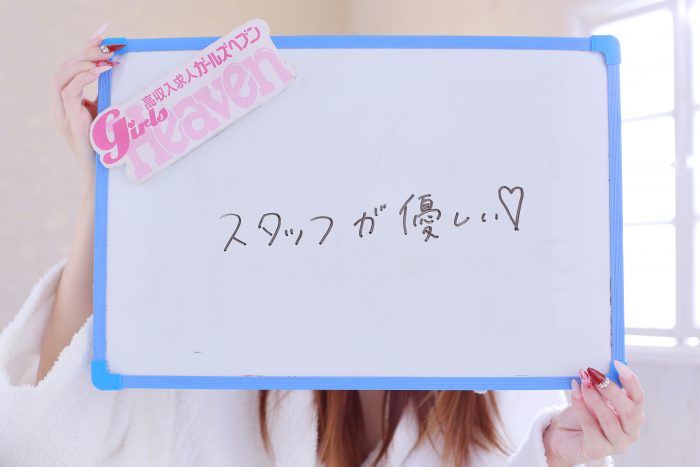 高収入求人ガールズヘブン
Girls
Heaven
スタッフが優しい♡